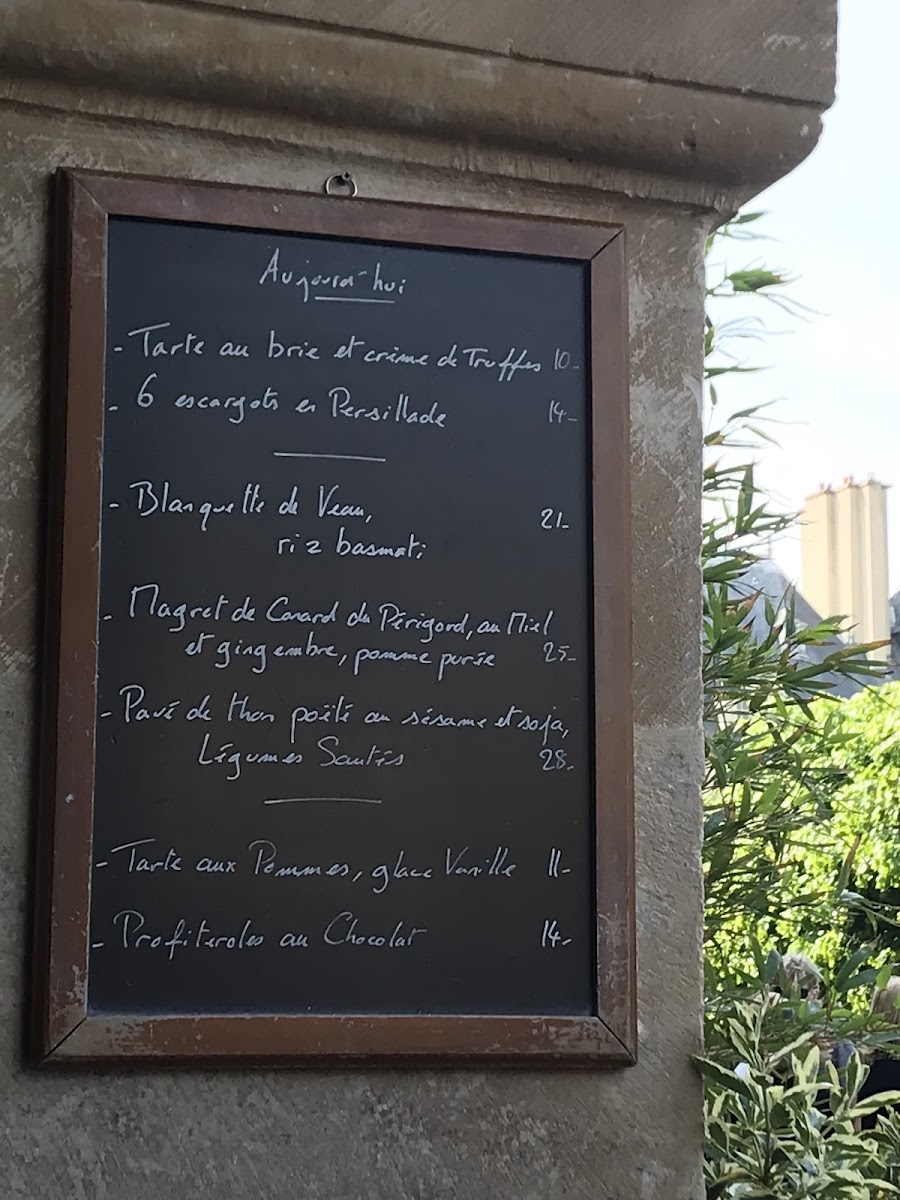 Aujourd'hui
- Tarte au brie et crème de Truffes 10-
- 6 escargots en Persillade 14-
- Blanquette de Veau, 21-
riz basmati
- Magret de Canard du Périgord, au Miel
et gingembre, pomme purée 25-
- Pavé de thon poëlé au sésame et soja,
Légumes Sautés 28-
- Tarte aux Pommes, glace Vanille 11-
- Profiteroles au Chocolat 14-